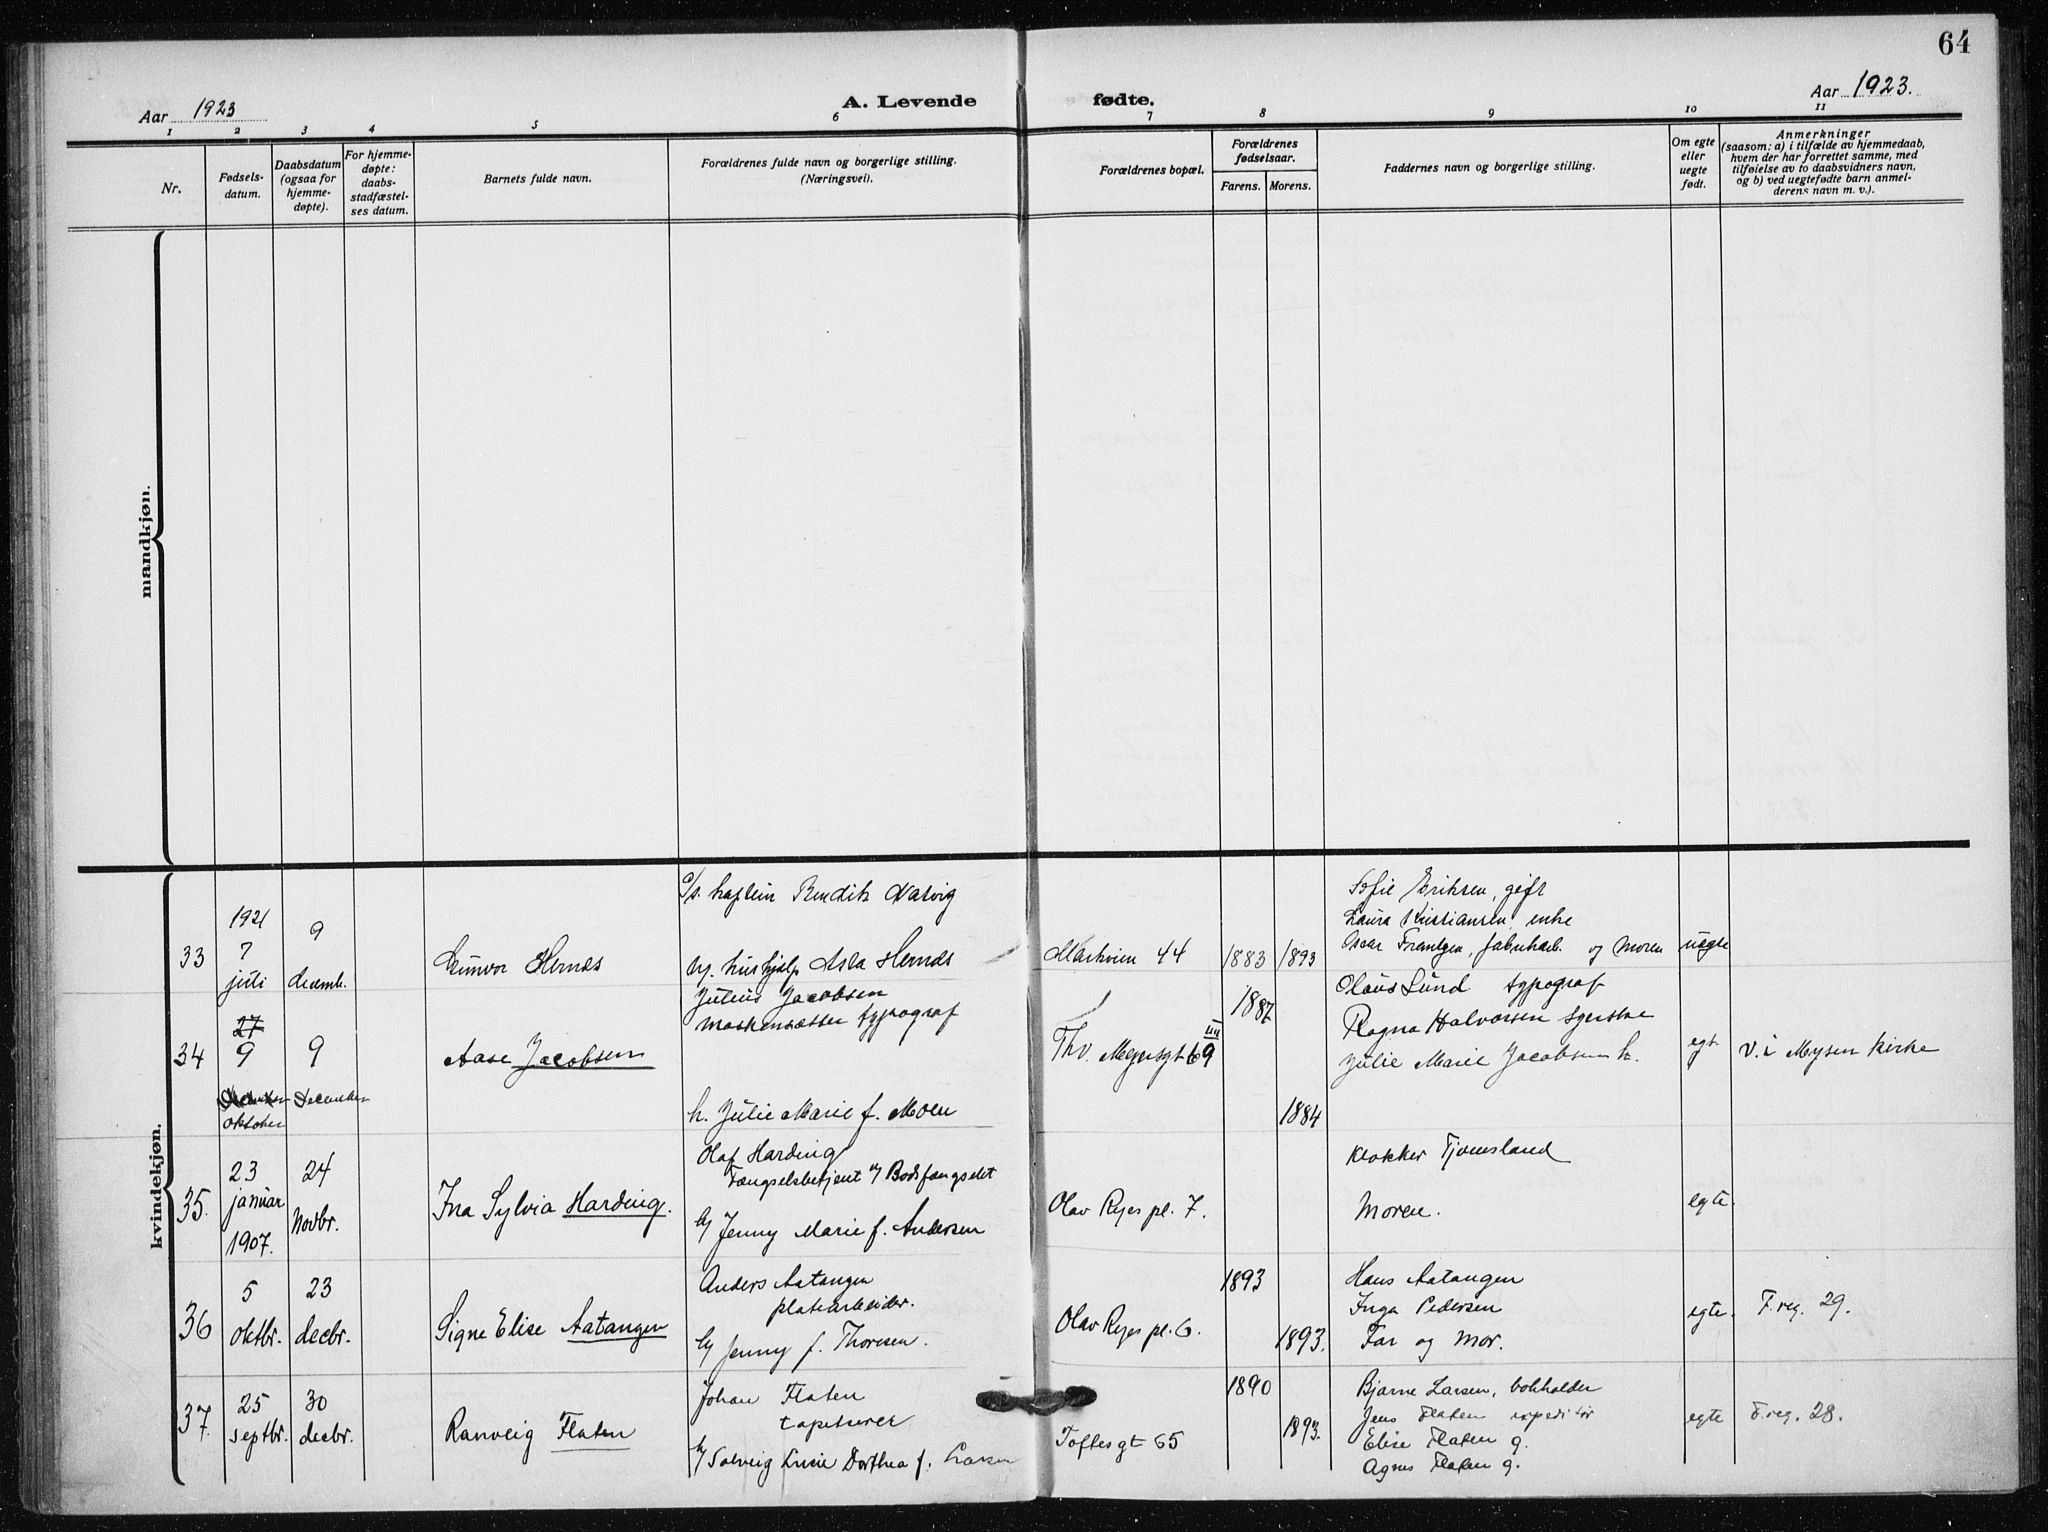 64
Aar 1923
A. Levende
fødte.
Aar 1923.
1 2 3 4 5 6 7 8 9 10 11
Nr.
Fødsels-
datum.
Daabsdatum
(ogsaa for
hjemme-
døpte).
For hjemme-
døpte:
daabs-
stadfæstel-
ses datum.
Barnets fulde navn.
Forældrenes fulde navn og borgerlige stilling.
(Næringsvei).
Forældrenes bopæl.
Forældrenes
fødselsaar.
Farens. Morens.
Faddernes navn og borgerlige stilling.
Om egte
eller
uegte
født.
Anmerkninger
(saasom: a) i tilfælde av hjemmedaab,
hvem der har forrettet samme, med
tilføielse av to daabsvidners navn,
og b) ved uegtefødte barn anmel-
derens navn m. v.).
mandkjøn.
kvindekjøn.
33
1921
7
juli
9
decemb.
Gunvor Hernæs
Kaptein Bendik Natvig
hushjælp Asla Hernæs
Markveien 44
1883 1893
Sofie Eriksen, gift
Laura Kristiansen, enke
Oscar Frantzen, fabrikarb. og Moren
uegte
34
27
9
December
oktober
9
December
Aase Jacobsen
Julius Jacobsen
Maskinsætter typograf
h. Julie Marie f. Moen
Thv. Meyersgt 69 III
1887
1884
Claus Lund typograf
Ragna Halvorsen syerske
Julie Marie Jacobsen h.
egt
V. i Mysen Kirke
35.
23
januar
1907.
24
Novbr.
Ina Sylvia Harding.
Olaf Harding
Fængselsbetjent v/ Bodsfængslet
h/ Jenny Marie f. Andersen
Olav Ryes pl. 7.
Klokker Tjomsland
Moren.
egte.
36
5
oktbr.
23
decbr.
Signe Elise Aatangen
Anders Aatangen
platearbeider.
h/ Jenny f. Thoresen.
Olav Ryes pl. 6.
1893
1893.
Hans Aatangen
Inga Pedersen
Far og Mor.
egte.
F. reg. 29.
37.
25
septbr.
30
decbr.
Ranveig Flaten
Johan Flaten
tapetserer
h/ Solveig Lucie Dorthea f. Larsen
Toftesgt 65
1890
1893.
Bjarne Larsen, bokholder
Jens Flaten expeditør
Elise Flaten g.
Agnes Flaten g.
egte
F. reg. 28.